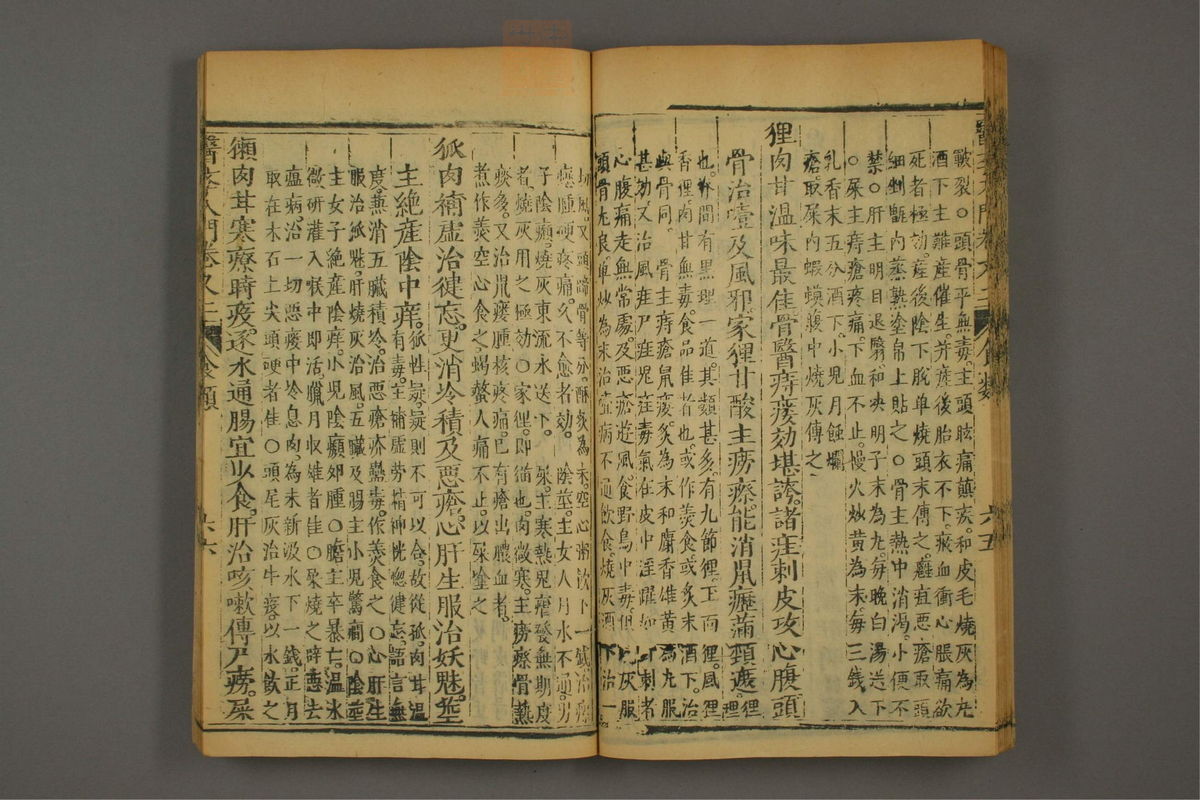 醫學入門卷之二 食類 六五
皺裂○頭骨平無毒主頭眩痛顛疾和皮毛燒灰為丸
酒下主難產催生并產後胎衣不下瘀血衝心脹痛欲
死者極効產後陰下脫單燒頭末傳之癰疽惡瘡取頭
細剉甑內蒸熟塗帛上貼之○骨主熱中消渴小便不
禁○肝主明目退翳和決明子末為丸每晚白湯送下
○屎主痔瘡疼痛下血不止慢火炒黃為末每三錢入
乳香末五分酒下小兒月蝕爛
瘡取屎內蝦蟆腹中燒灰傳之
狸肉甘溫味最佳骨醫痔瘻効堪誇諸疰刺皮攻心腹頭
骨治噎及風邪家狸甘酸主癆瘵能消鼠瘻滿頸遮狸
也外間有黑理一道其類甚多有九節狸玉面狸風狸
香狸肉甘無毒食品佳者也或作羹食或炙末酒下治
與骨同骨主痔瘡鼠瘻炙為末和麝香雄黃為丸服
甚効又治風疰尸疰鬼疰毒氣在皮中淫躍如刺者
心腹痛走無常處及惡瘡遊風食野鳥中毒但灰服
頭骨尤良單炒為末治噎病不通飲食燒灰酒下治一
切風又頭蹄骨等分酥炙為末空心粥飲下一錢治瘰
癧腫硬疼痛久不愈者効陰莖主女人月水不通男
子陰㿗燒灰東流水送下屎主寒熱鬼瘧發無期度
者燒灰用之極効○家狸即猫也肉微寒主癆瘵骨熱
痰多又治鼠瘻腫核疼痛已有瘡出膿血者
煮作羹空心食之蝎螫人痛不止以屎塗之
狐肉補虛治健忘更消冷積及惡瘡心肝生服治妖魅莖
主絕產陰中痒狐性疑疑則不可以合故從孤肉甘溫
有毒主補虛勞精神恍惚健忘語言無
度兼消五臟積冷治惡瘡疥蠱毒作羹食之○心肝生
服治狐魅肝燒灰治風五臟及腸主小兒驚癇○陰莖
主女子絕產陰痒小兒陰㿗卵腫○膽主卒暴亡溫水
微研灌入喉中即活臘月收雄者佳○屎燒之辟惡去
瘟病治一切惡瘻中冷息肉為末新汲水下一錢正月
取在木石上尖頭硬者佳○頭尾灰治牛疫以水飲之
獺肉甘寒療時疫逐水通腸宜少食肝治咳嗽傳尸癆屎
醫學入門卷之二 食類 六六